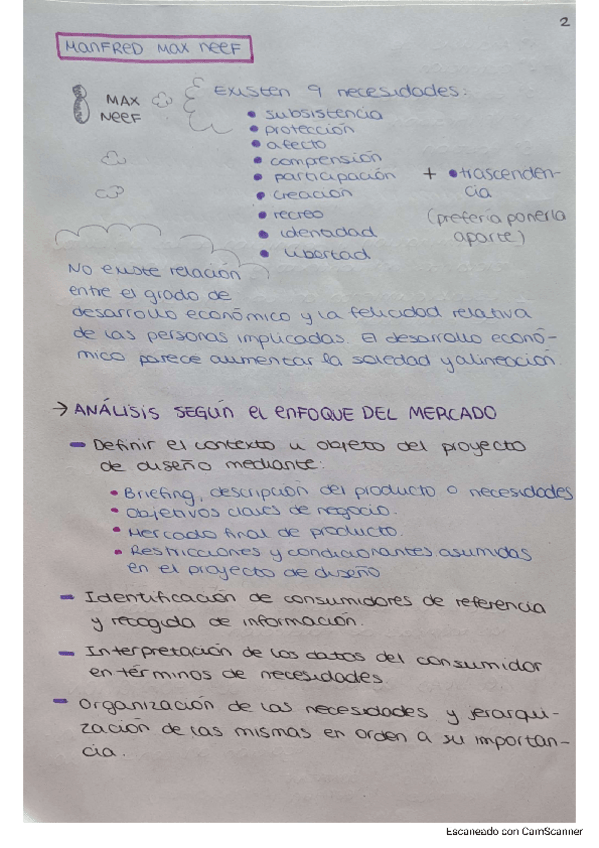 2
MANFRED MAX NEEF
MAX
NEEF
Existen 9 necesidades:
• subsistencia
• protección
• afecto
• comprensión
• participación
• creación
• recreo
• identidad
• libertad
+ • trascenden-
cia
(preferia ponerla
aparte)
No existe relación
entre el grado de
desarrollo económico y la felicidad relativa
de las personas implicadas. El desarrollo econó-
mico parece aumentar la soledad y alineación.
→ ANÁLISIS SEGÚN EL ENFOQUE DEL MERCADO
- Definir el contexto u objeto del proyecto
de diseño mediante:
• Briefing, descripción del producto o necesidades
• Objetivos claves de negocio.
• Mercado final de producto.
• Restricciones y condicionantes asumidas
en el proyecto de diseño
- Identificación de consumidores de referencia
y recogida de información.
- Interpretación de los datos del consumidor
en términos de necesidades.
- Organización de las necesidades y jerarqui-
zación de las mismas en orden a su importan-
cia.
Escaneado con CamScanner